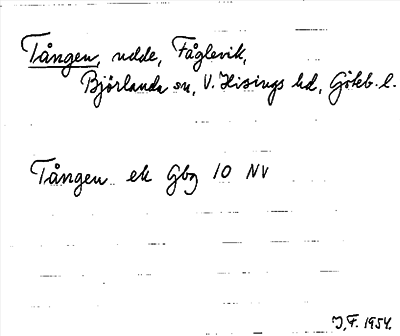 Tången, udde, Fåglevik,
Björlanda sn, V. Hisings hd, Göteb. l.
Tången ek Gbg 10 NV
J.F. 1954.